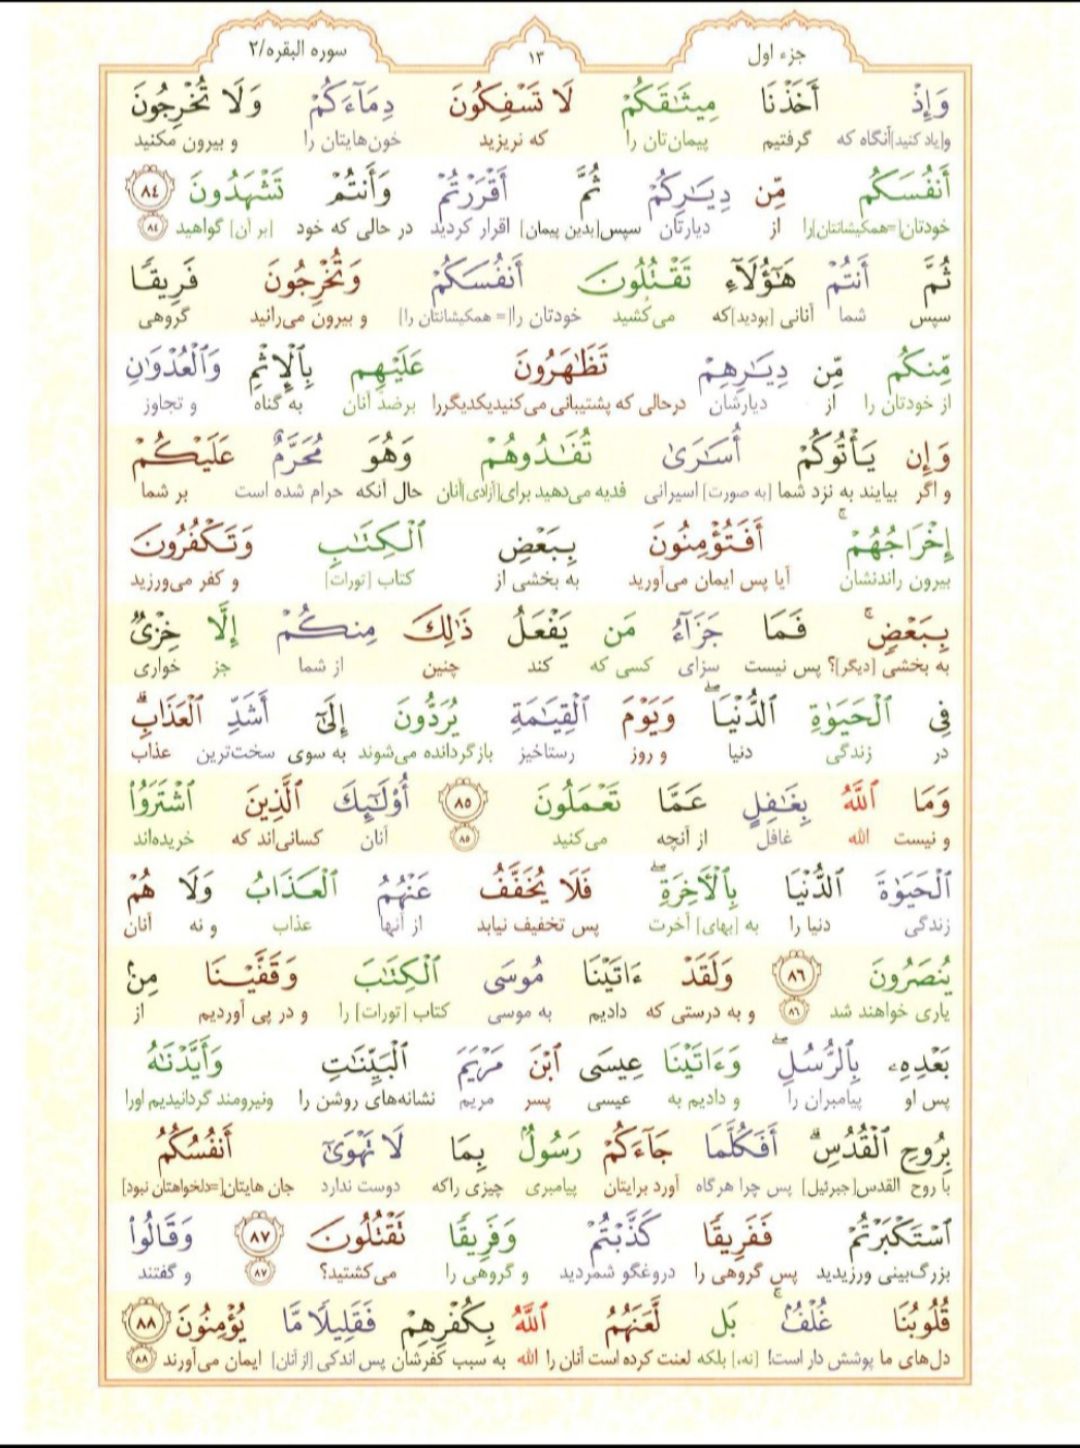 جزء اول
۱۳
سوره البقره/۲
وَإِذْ أَخَذْنَا مِيثَـٰقَكُمْ لَا تَسْفِكُونَ دِمَآءَكُمْ وَلَا تُخْرِجُونَ
و[یاد کنید]آنگاه که گرفتیم پیمان‌تان را که نریزید خون‌هایتان را و بیرون مکنید
أَنفُسَكُم مِّن دِيَـٰرِكُمْ ثُمَّ أَقْرَرْتُمْ وَأَنتُمْ تَشْهَدُونَ ٨٤
خودتان[=همکیشانتان]را از دیارتان سپس[بدین پیمان] اقرار کردید در حالی که خود [بر آن] گواهید ٨٤
ثُمَّ أَنتُمْ هَـٰٓؤُلَآءِ تَقْتُلُونَ أَنفُسَكُمْ وَتُخْرِجُونَ فَرِيقًا
سپس شما آنانی [بودید]که می‌کُشید خودتان را[= همکیشانتان را] و بیرون می‌رانید گروهی
مِّنكُم مِّن دِيَـٰرِهِمْ تَظَـٰهَرُونَ عَلَيْهِم بِٱلْإِثْمِ وَٱلْعُدْوَٰنِ
از خودتان را از دیارشان درحالی که پشتیبانی می‌کنیدیکدیگررا برضد آنان به گناه و تجاوز
وَإِن يَأْتُوكُمْ أُسَـٰرَىٰ تُفَـٰدُوهُمْ وَهُوَ مُحَرَّمٌ عَلَيْكُمْ
و اگر بیایند به نزد شما [به صورت] اسیرانی فدیه می‌دهید برای[آزادی]آنان حال آنکه حرام شده است بر شما
إِخْرَاجُهُمْ ۚ أَفَتُؤْمِنُونَ بِبَعْضِ ٱلْكِتَـٰبِ وَتَكْفُرُونَ
بیرون راندنشان آیا پس ایمان می‌آورید به بخشی از کتاب [تورات] و کفر می‌ورزید
بِبَعْضٍ ۚ فَمَا جَزَآءُ مَن يَفْعَلُ ذَٰلِكَ مِنكُمْ إِلَّا خِزْىٌ
به بخشی [دیگر]؟ پس نیست سزای کسی که کند چنین از شما جز خواری
فِى ٱلْحَيَوٰةِ ٱلدُّنْيَا ۖ وَيَوْمَ ٱلْقِيَـٰمَةِ يُرَدُّونَ إِلَىٰٓ أَشَدِّ ٱلْعَذَابِ ۗ
در زندگی دنیا و روز رستاخیز بازگردانده می‌شوند به سوی سخت‌ترین عذاب
وَمَا ٱللَّهُ بِغَـٰفِلٍ عَمَّا تَعْمَلُونَ ٨٥ أُو۟لَـٰٓئِكَ ٱلَّذِينَ ٱشْتَرَوُا۟
و نیست الله غافل از آنچه می‌کنید ٨٥ آنان کسانی‌اند که خریده‌اند
ٱلْحَيَوٰةَ ٱلدُّنْيَا بِٱلْـَٔاخِرَةِ ۖ فَلَا يُخَفَّفُ عَنْهُمُ ٱلْعَذَابُ وَلَا هُمْ
زندگی دنیا را به [بهای] آخرت پس تخفیف نیابد از آنها عذاب و نه آنان
يُنصَرُونَ ٨٦ وَلَقَدْ ءَاتَيْنَا مُوسَى ٱلْكِتَـٰبَ وَقَفَّيْنَا مِنۢ
یاری خواهند شد ٨٦ و به درستی که دادیم به موسی کتاب [تورات] را و در پی آوردیم از
بَعْدِهِۦ بِٱلرُّسُلِ ۖ وَءَاتَيْنَا عِيسَى ٱبْنَ مَرْيَمَ ٱلْبَيِّنَـٰتِ وَأَيَّدْنَـٰهُ
پس او پیامبران را و دادیم به عیسی پسر مریم نشانه‌های روشن را ونیرومند گردانیدیم اورا
بِرُوحِ ٱلْقُدُسِ ۗ أَفَكُلَّمَا جَآءَكُمْ رَسُولٌۢ بِمَا لَا تَهْوَىٰٓ أَنفُسُكُمُ
با روح القدس[جبرئیل] پس چرا هرگاه آورد برایتان پیامبری چیزی راکه دوست ندارد جان هایتان[=دلخواهتان نبود]
ٱسْتَكْبَرْتُمْ فَفَرِيقًا كَذَّبْتُمْ وَفَرِيقًا تَقْتُلُونَ ٨٧ وَقَالُوا۟
بزرگ‌بینی ورزیدید پس گروهی را دروغگو شمردید و گروهی را می‌کشتید؟ ٨٧ و گفتند
قُلُوبُنَا غُلْفٌۢ ۚ بَل لَّعَنَهُمُ ٱللَّهُ بِكُفْرِهِمْ فَقَلِيلًا مَّا يُؤْمِنُونَ ٨٨
دل‌های ما پوشش دار است! [نه،] بلکه لعنت کرده است آنان را الله به سبب کفرشان پس اندکی [از آنان] ایمان می‌آورند ٨٨